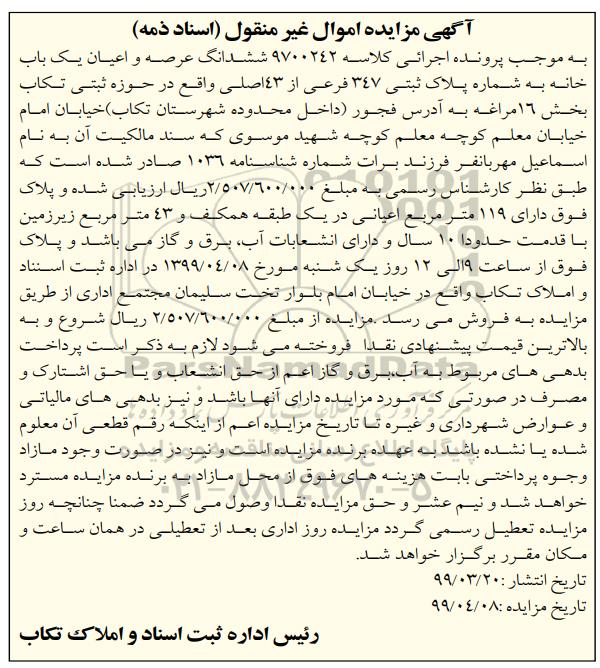 آگهی مزایده اموال غیر منقول (اسناد ذمه)
به موجب پرونده اجرائی کلاسه ۹۷۰۰۲۴۲ ششدانگ عرصه و اعیان یک باب
خانه به شماره پلاک ثبتی ۳۴۷ فرعی از ۴۳اصلی واقع در حوزه ثبتی تکاب
بخش ۱۶مراغه به آدرس فجور (داخل محدوده شهرستان تکاب)خیابان امام
خیابان معلم کوچه معلم کوچه شهید موسوی که سند مالکیت آن به نام
اسماعیل مهربانفر فرزند برات شماره شناسنامه ۱۰۳۶ صادر شده است که
طبق نظر کارشناس رسمی به مبلغ ۲/۵۰۷/۶۰۰/۰۰۰ریال ارزیابی شده و پلاک
فوق دارای ۱۱۹ متر مربع اعیانی در یک طبقه همکف و ۴۳ متر مربع زیرزمین
با قدمت حدودا ۱۰ سال و دارای انشعابات آب، برق و گاز می باشد و پلاک
فوق از ساعت ۹الی ۱۲ روز یک شنبه مورخ ۱۳۹۹/۰۴/۰۸ در اداره ثبت اسنناد
و املاک تکاب واقع در خیابان امام بلوار تخت سلیمان مجتمع اداری از طریق
مزایده به فروش می رسد .مزایده از مبلغ ۲/۵۰۷/۶۰۰/۰۰۰ ریال شروع و به
بالاترین قیمت پیشنهادی نقدا فروخته می شود لازم به ذکر است پرداخت
بدهی های مربوط به آب،برق و گاز اعم از حق انشعاب و یا حق اشتارک و
مصرف در صورتی که مورد مزایده دارای آنها باشد و نیز بدهی های مالیاتی
و عوارض شهرداری و غیره تا تاریخ مزایده اعم از اینکه رقم قطعی آن معلوم
شده یا نشده باشد به عهده برنده مزایده است و نیز در صورت وجود مازاد
وجوه پرداختی بابت هزینه های فوق از محل مازاد به برنده مزایده مسترد
خواهد شد و نیم عشر و حق مزایده نقدا وصول می گردد ضمنا چنانچه روز
مزایده تعطیل رسمی گردد مزایده روز اداری بعد از تعطیلی در همان ساعت و
مکان مقرر برگزار خواهد شد.
تاریخ انتشار :۹۹/۰۳/۲۰
تاریخ مزایده :۹۹/۰۴/۰۸
رئیس اداره ثبت اسناد و املاک تکاب
ParsNamadData
پایگاه اطلاع رسانی مناقصه و مزایده
۰۲۱-۸۸۳۴۹۶۷۰-۵